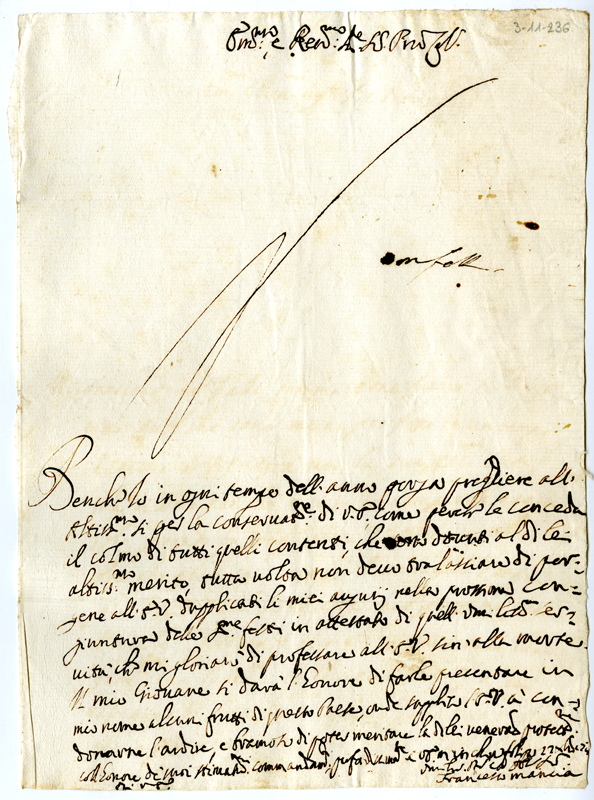 3-11-236
Em.mo e Rev.mo
Bench'Io in ogni tempo dell'anno porga preghiere all'
Altiss.mo si per la conservaz.ne di V.E. come perche le conceda
il colmo di tutti quelli contenti, che sono dovuti al di lei
altiss.mo merito, tutta volta non devo tralasciare di por=
gere all'E.V. duplicati li miei augurj nella prossima con=
giuntura delle feste in attestato di quell' umiliss. ser=
vitù, che mi gloriarò di professare all'E.V. sin alla morte.
Il mio Giovane si darà l'Honore di farle presentare in
mio nome alcuni frutti di questo Paese, onde supplico l'E.V. à con=
donarne l'ardire, e bramoso di poter meritare la di lei
coll'Honore de suoi comandi
Francesco Mancia